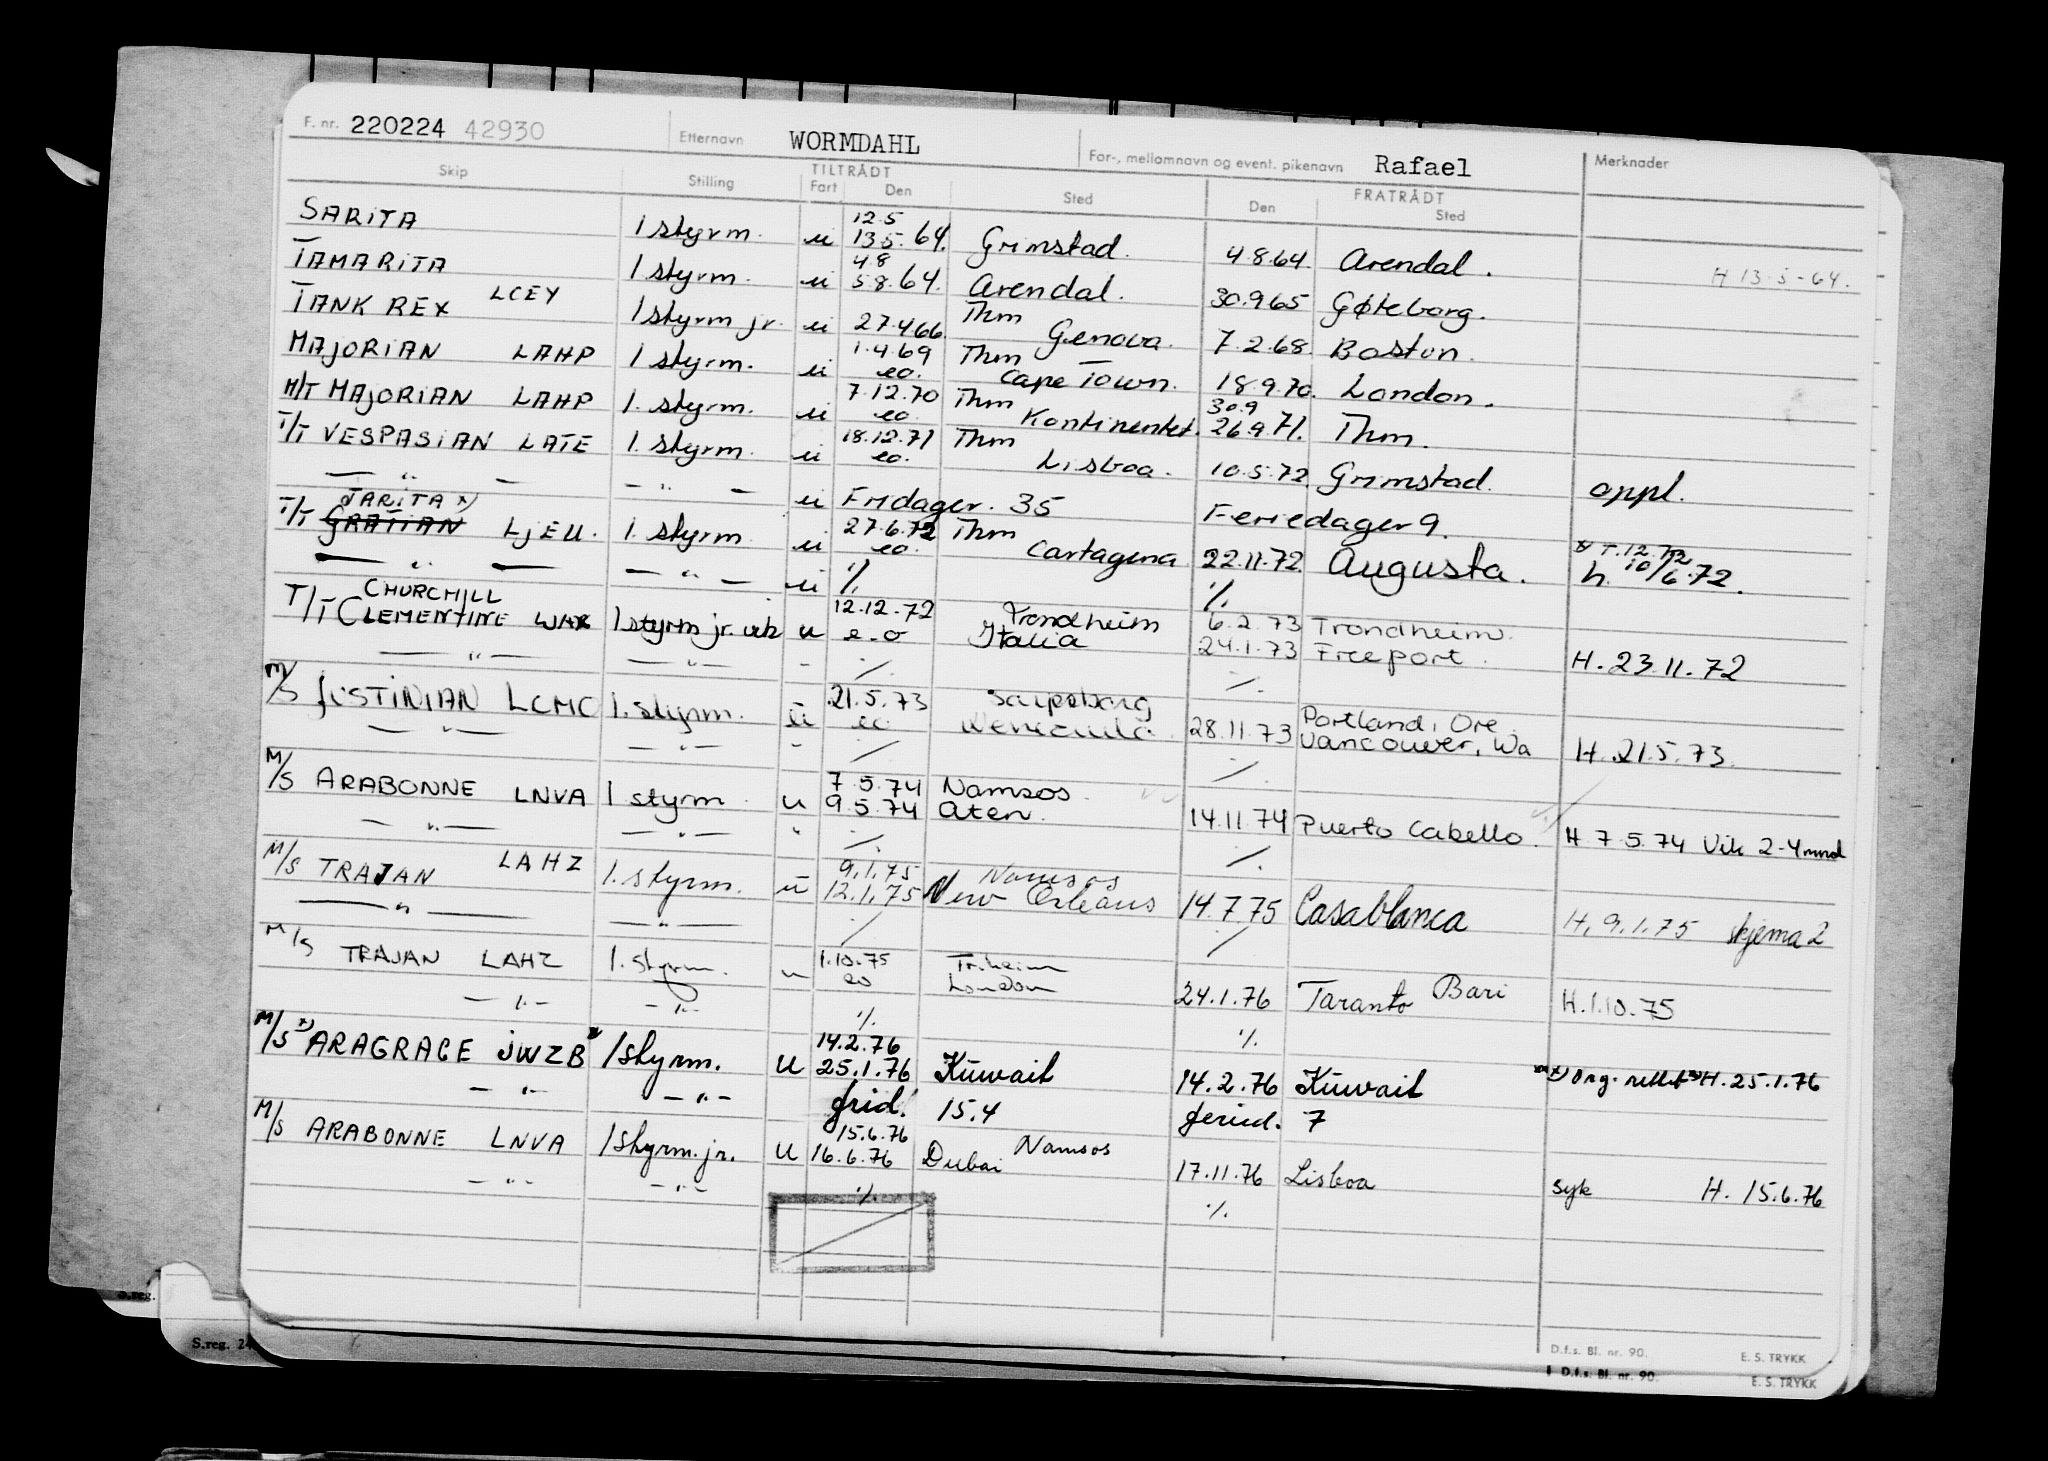 F. nr. 220224 42930 Etternavn WORMDAHL For-, mellomnavn og event. pikenavn Rafael Merknader
Skip Stilling TILTRÅDT Fart Den Sted FRATRÅDT Den Sted
12.5
SARITA 1 styrm. u 13.5.64. Grimstad. 4.8.64. Arendal. H 13-5-64.
4 8
TAMARITA 1 styrm. u 5.8.64. Arendal. 30.9.65 Gøteborg.
Thm
TANK REX LCEY 1 styrm jr. u 27.4.66. Genova. 7.2.68. Boston.
1.4.69 Thm
MAJORIAN LAHP 1 styrm. u eo. Cape Town. 18.9.70. London.
7.12.70 Thm 30.9
M/T MAJORIAN LAHP 1. styrm. u eo Kontinentet. 26.9.71. Thm.
18.12.71 Thm
T/T VESPASIAN LATE 1. styrm. u eo. Lisboa. 10.5.72 Grimstad. oppl.
— " — — " — u Fridager. 35 Feriedager 9.
TARITA x) 27.6.72 Thm x T.12.72
T/T GRATIAN LJEU. 1. styrm u eo. Cartagena 22.11.72. Augusta. h. 10/6.72.
— " — — " — u ·/. ·/.
CHURCHILL 12.12.72 Trondheim 6.2.73 Trondheim.
T/T CLEMENTINE WAX 1 styrm jr. vik u e.o Italia 24.1.73 Freeport. H. 23.11.72
— " — — " — - ·/. ·/.
21.5.73 Sarpsborg Portland, Ore
M/S JUSTINIAN LCMC 1. styrm. u eo Venezuela. 28.11.73 Vancouver, Wa H. 21.5.73.
— " — — " — - ·/. ·/.
7.5.74 Namsos.
M/S ARABONNE LNVA 1 styrm u 9.5.74 Aten. 14.11.74 Puerto Cabello. H 7.5.74 Vik 2-4 mnd
— " — — " — " ·/. ·/.
9.1.75 Namsos
M/S TRAJAN LAHZ 1. styrm. u 12.1.75 New Orleans 14.7.75 Casablanca H. 9.1.75 skjema 2
— " — — " — ·/. ·/.
1.10.75 Tr.heim
M/S TRAJAN LAHZ 1. styrm. u eo London 24.1.76 Taranto Bari H.1.10.75
— " — — " — ·/. ·/.
14.2.76
M/S x) ARAGRACE JWZB 1 styrm. u 25.1.76 Kuwait 14.2.76 Kuwait x) org. rettet H. 25.1.76
— " — — " — frid. 15.4 feried. 7
15.6.76 Namsos
M/S ARABONNE LNVA 1 styrm. jr. u 16.6.76 Dubai 17.11.76 Lisboa syk H. 15.6.76
— " — — " — ·/. ·/.
S.reg.
S.reg. 24
D.f.s. Bl. nr. 90. E. S. TRYKK
D.f.s. Bl. nr. 90. E. S. TRYKK